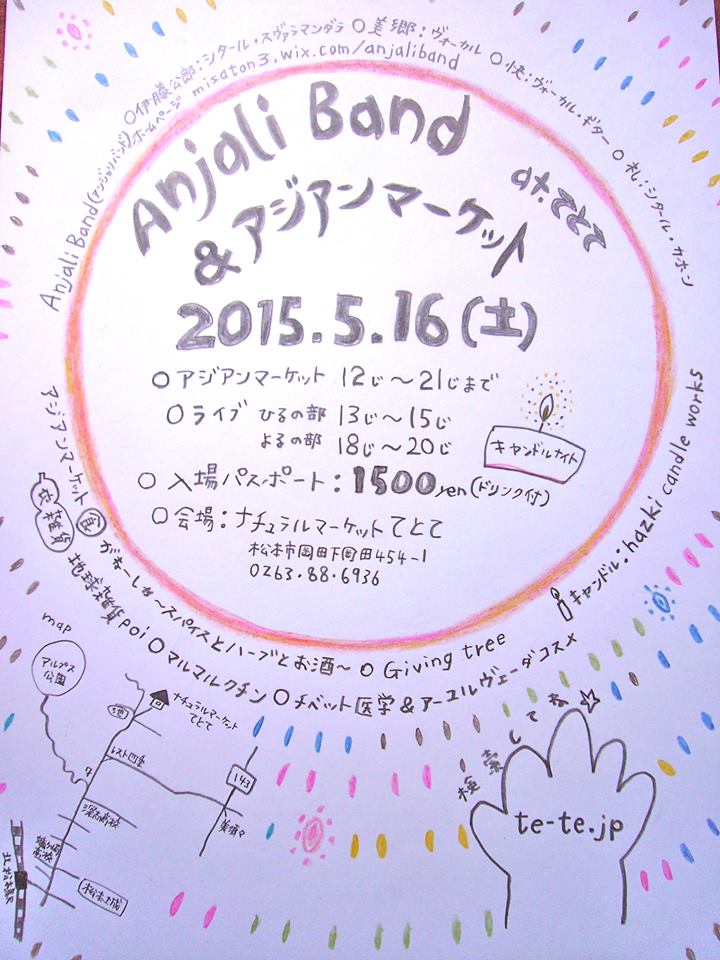 ○伊藤公郎:シタール・スヴァラマンダラ ○美郷:ヴォーカル ○快:ヴォーカル・ギター ○礼:シタール・カホーン
Anjali Band(アンジャリバンド)ホームページ misaton3.wix.com/anjaliband
Anjali Band
at.てとて
&アジアンマーケット
2015.5.16(土)
○アジアンマーケット 12じ~21じまで
○ライブ ひるの部 13じ~15じ
よるの部 18じ~20じ
キャンドルナイト
○入場パスポート:1500yen(ドリンク付)
○会場:ナチュラルマーケットてとて
松本市岡田下岡田454-1
0263.88.6936
キャンドル:hazki candle works
アジアンマーケット 食 がねーしか~スパイスとハーブとお酒~ ○Giving tree
衣 雑貨 地球雑貨poi ○マルマルクチン ○チベット医学&アーユルヴェーダコスメ
map
アルプス
公園
池
ナチュラルマーケット
てとて
143
美須々
松本城
北松本駅
検索してね☆
te-te.jp